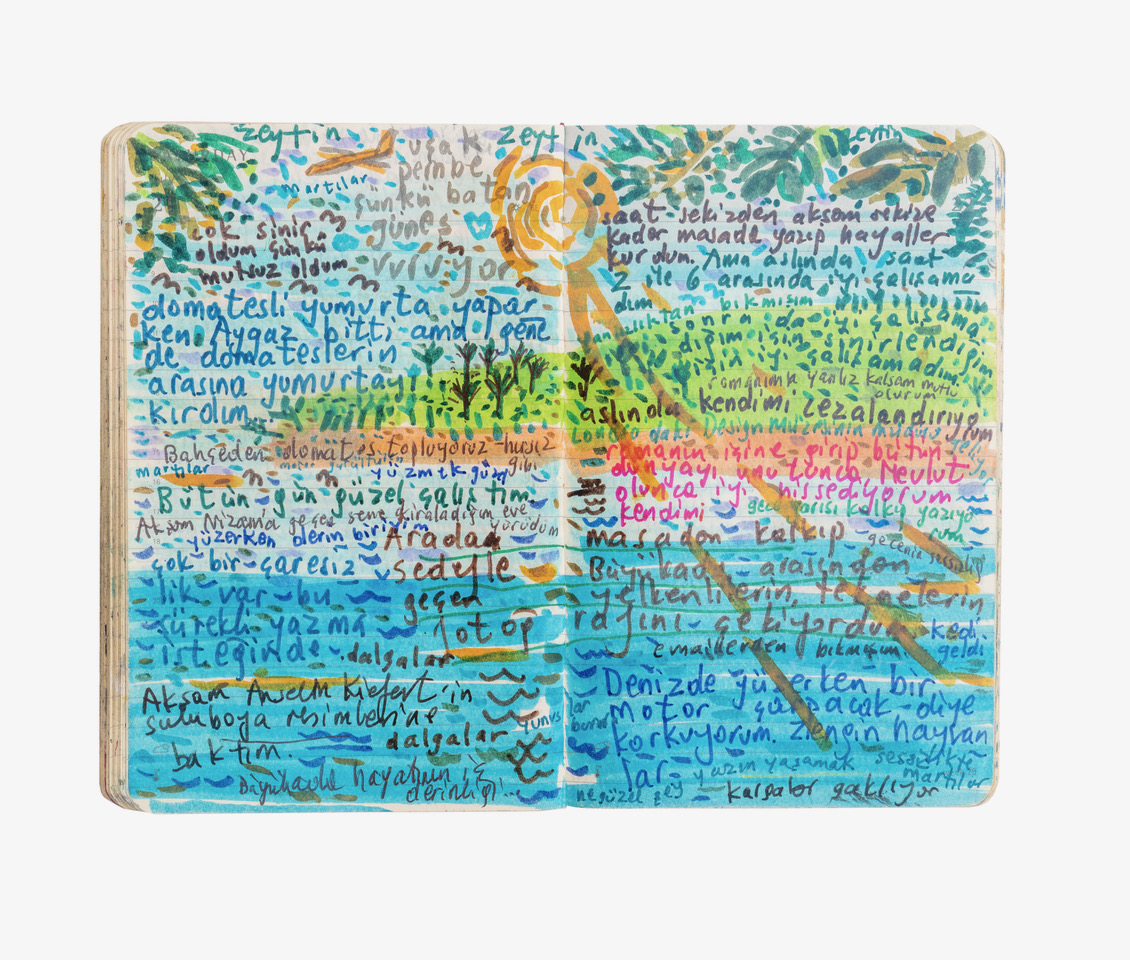 zeytin
martılar
uçak
pembe
çünkü batan
güneş
vuruyor
çok sinir
oldum çünkü
mutsuz oldum
domatesli yumurta yapar
ken Aygaz bitti ama gene
de domateslerin
arasına yumurtayı
kırdım
Bahçeden domates topluyoruz hırsız
gibi
martılar
yüzmek güzel
Bütün gün güzel çalıştım
Akşam Nizam'a geçen sene kiraladığım eve
yürüdüm
yüzerken
çok bir çaresiz
lik var bu
sürekli yazma
isteğinde
Aradan
sedyfle
geçen
dalgalar
Akşam Anselm Kiefert'in
suluboya resimlerine
baktım.
dalgalar
yunus
Büyükada hayatının
derinliği...
zeytin
zeytin
saat sekizden akşam sekize
kadar masada yazıp hayaller
kurdum. Ama aslında saat
2 ile 6 arasında iyi çalışama
dım
bıkmışım
sonra da iyi çalışama
dığım için sinirlendiğim
için iyi çalışamadım.
romanımla yalnız kalsam mutlu
olurum
aslında kendimi cezalandırıyo
rum
Londra daki Design Müzesinin
romanın içine girip bütün
dünyayı unutunca Mevlut
olunca iyi hissediyorum
kendimi
gece yarısı kalkıp yazıyo
rum
masadan kalkıp
gecenin sessizliği
Büyükada arasından
yelkenlilerin, teknelerin
kedi
geldi
emailerden bıkmışım
Denizde yüzerken bir
motor çarpacak diye
korkuyorum. Zengin hayvan
lar
yazın yaşamak sessizlikte
martılar
ne güzel şey
kargalar gaklıyor